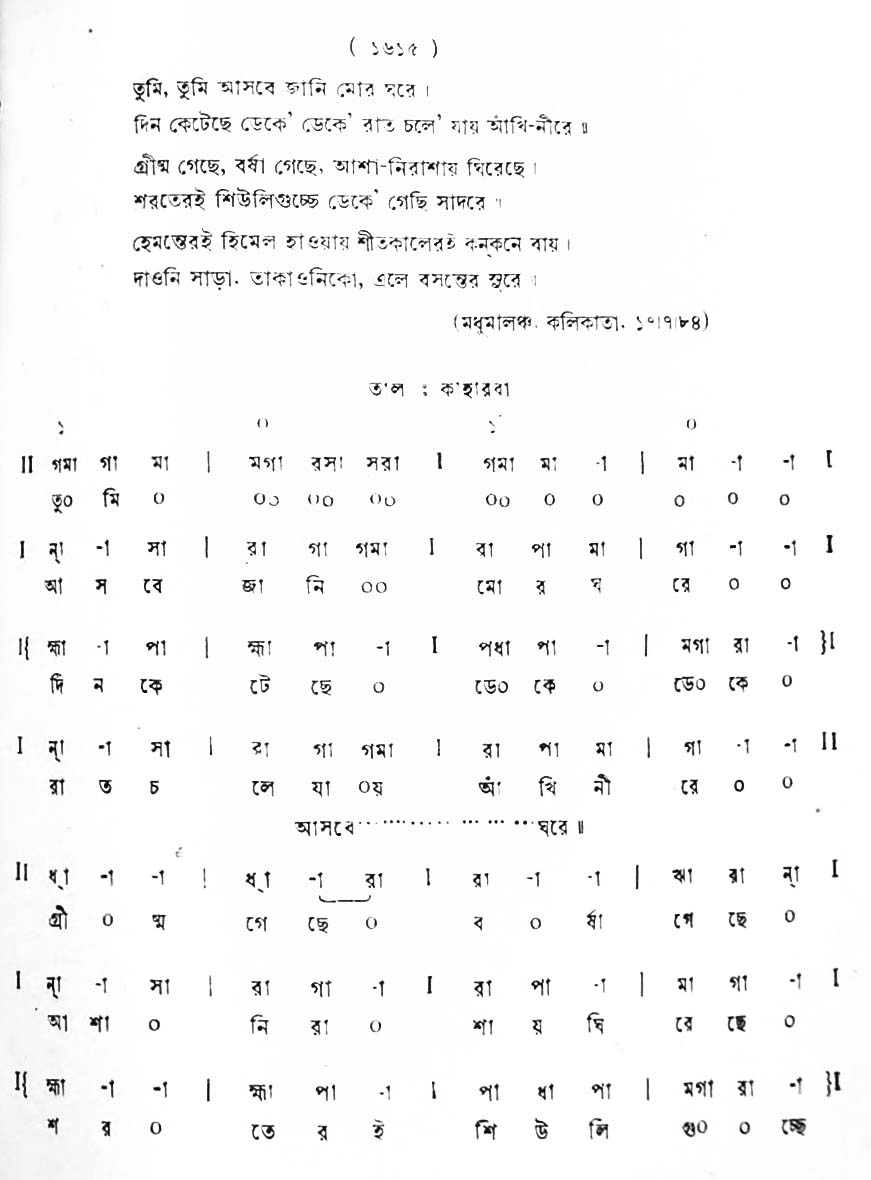 ( ১৬১৫ )
তুমি, তুমি আসবে জানি মোর ঘরে ।
দিন কেটেছে ডেকে' ডেকে' রাত চলে' যায় আঁখি-নীরে ॥
গ্রীষ্ম গেছে, বর্ষা গেছে, আশা-নিরাশায় ঘিরেছে ।
শরতেরই শিউলিগুচ্ছে ডেকে' গেছি সাদরে ।
হেমন্তেরই হিমেল হাওয়ায় শীতকালেরই কন্‌কনে বায় ।
দাওনি সাড়া, তাকাওনিকো, এলে বসন্তের সুরে ।
(মধুমালঞ্চ, কলিকাতা, ১৭।৭।৮৪)
তাল : কাহারবা
১ ০ ১ ০
II গমা গা মা | মগা রসা সরা I গমা মা -া | মা -া -া I
তু০ মি ০ ০০ ০০ ০০ ০০ ০ ০ ০ ০ ০
I ন্া -া সা | রা গা গমা I রা পা মা | গা -া -া I
আ স বে জা নি ০০ মো র ঘ রে ০ ০
I{ হ্মা -া পা | হ্মা পা -া I পধা পা -া | মগা রা -া }I
দি ন কে টে ছে ০ ডে০ কে ০ ডে০ কে ০
I ন্া -া সা | রা গা গমা I রা পা মা | গা -া -া II
রা ত চ লে যা ০য় আঁ খি নী রে ০ ০
আসবে ·················· ঘরে ॥
II ধ্া -া -া | ধ্া -া রা I রা -া -া | ঝা রা ন্া I
গ্রী ০ ষ্ম গে ছে ০ ব ০ র্ষা গে ছে ০
I ন্া -া সা | রা গা -া I রা পা -া | মা গা -া I
আ শা ০ নি রা ০ শা য় ঘি রে ছে ০
I{ হ্মা -া -া | হ্মা পা -া I পা ধা পা | মগা রা -া }I
শ র ০ তে র ই শি উ লি গু০ ০ চ্ছে